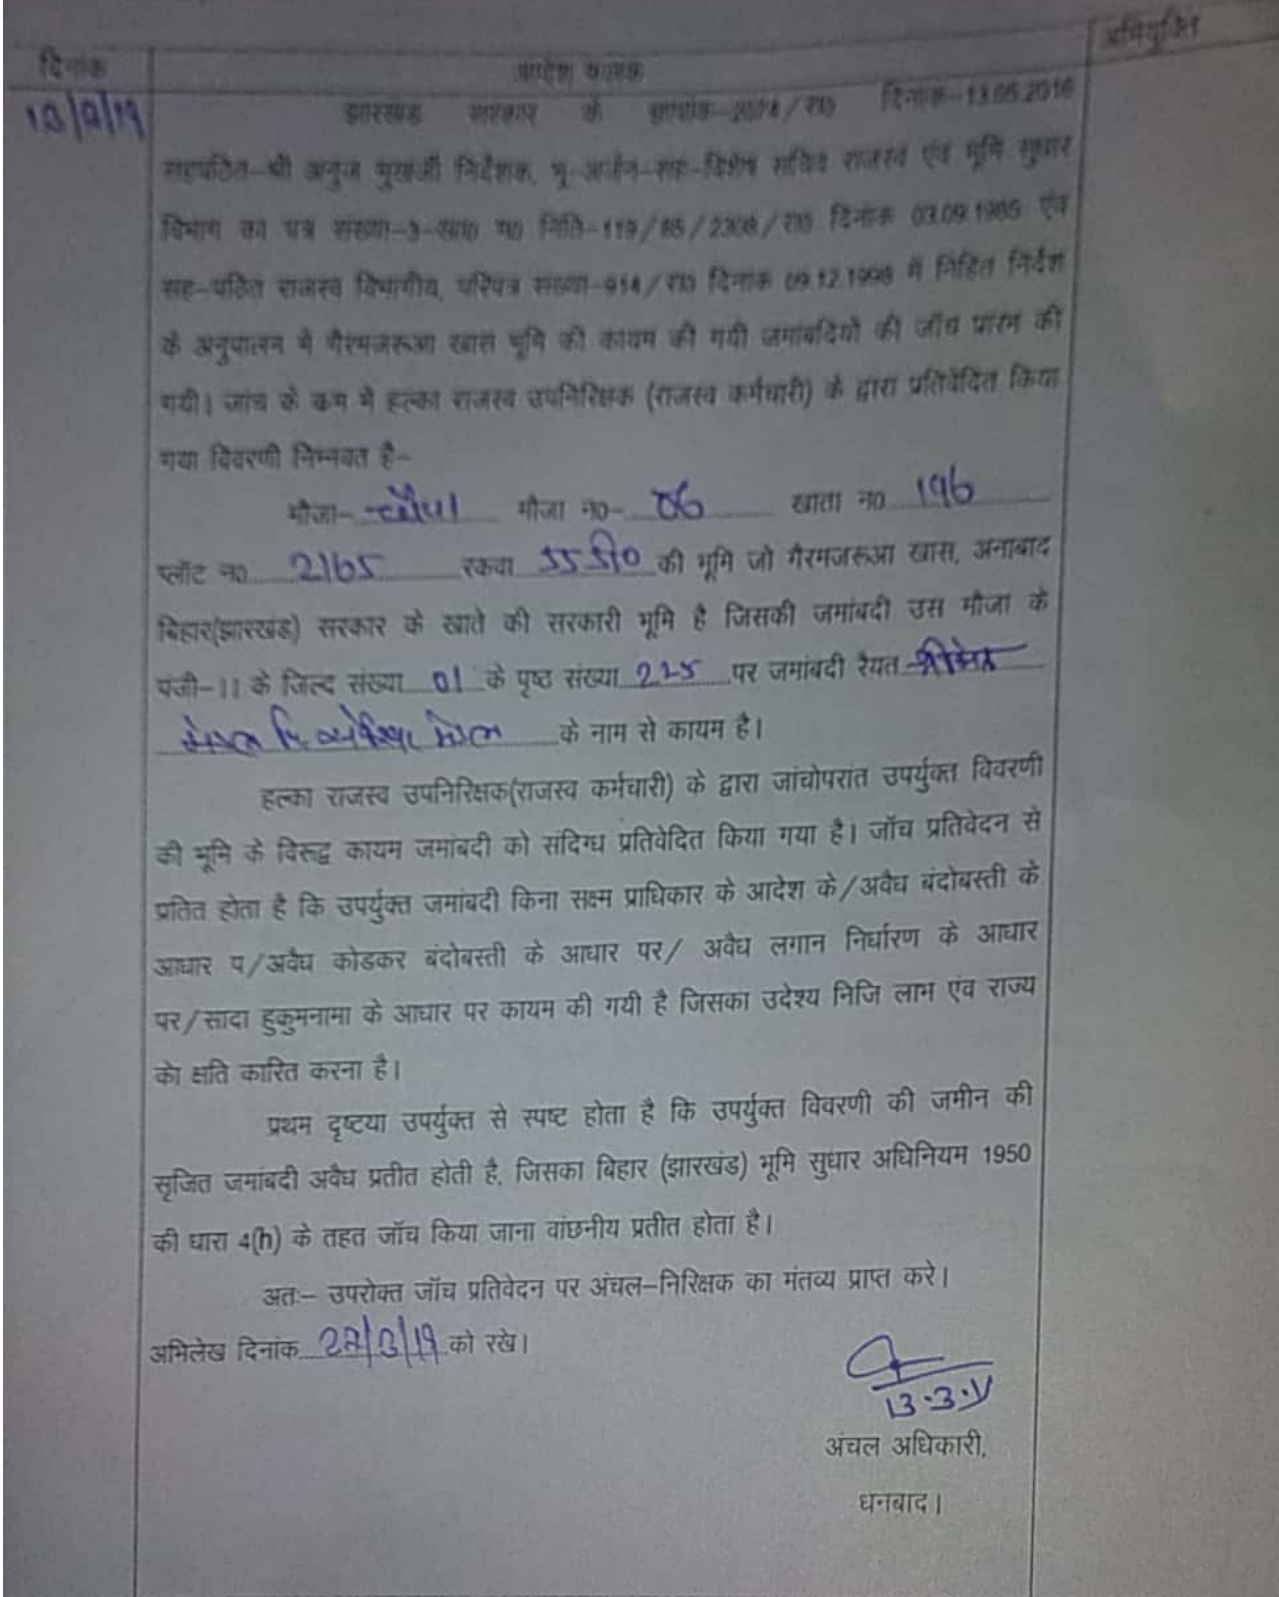 दिनांक
आदेश फलक
अभियुक्ति
13/3/19
झारखंड सरकार के दिनांक-13.05.2016
सहपठित-श्री अनुज मुखर्जी निर्देशक, भू-अर्जन-सह-विशेष सचिव राजस्व एवं भूमि सुधार
विभाग का पत्र संख्या-3-खा0 म0 निति-119/85/2308/रा0 दिनांक 03.09.1985 एंव
सह-पठित राजस्व विभागीय, परिपत्र संख्या-914/रा0 दिनांक 09.12.1998 में निहित निर्देश
के अनुपालन में गैरमजरूआ खास भूमि की कायम की गयी जमांबदियो की जाँच प्रारंभ की
गयी। जांच के क्रम में हल्का राजस्व उपनिरिक्षक (राजस्व कर्मचारी) के द्वारा प्रतिवेदित किया
गया विवरणी निम्नवत है-
मौजा- मौजा न0- 06 खाता न0 196
प्लॉट न0 2165 रकवा 55 डी0 की भूमि जो गैरमजरूआ खास, अनाबाद
बिहार(झारखंड) सरकार के खाते की सरकारी भूमि है जिसकी जमांबदी उस मौजा के
पंजी-11 के जिल्द संख्या 01 के पृष्ठ संख्या 225 पर जमांबदी रैयत
के नाम से कायम है।
हल्का राजस्व उपनिरिक्षक(राजस्व कर्मचारी) के द्वारा जांचोपरांत उपर्युक्त विवरणी
की भूमि के विरूद्ध कायम जमांबदी को संदिग्ध प्रतिवेदित किया गया है। जाँच प्रतिवेदन से
प्रतित होता है कि उपर्युक्त जमांबदी किना सक्ष्म प्राधिकार के आदेश के/अवैध बंदोबस्ती के
आधार प/अवैध कोडकर बंदोबस्ती के आधार पर/ अवैध लगान निर्धारण के आधार
पर/सादा हुकुमनामा के आधार पर कायम की गयी है जिसका उदेश्य निजि लाभ एंव राज्य
को क्षति कारित करना है।
प्रथम दृष्टया उपर्युक्त से स्पष्ट होता है कि उपर्युक्त विवरणी की जमीन की
सृजित जमांबदी अवैध प्रतीत होती है, जिसका बिहार (झारखंड) भूमि सुधार अधिनियम 1950
की धारा 4(h) के तहत जाँच किया जाना वांछनीय प्रतीत होता है।
अतः- उपरोक्त जाँच प्रतिवेदन पर अंचल-निरिक्षक का मंतव्य प्राप्त करे।
अभिलेख दिनांक 27/3/19 को रखे।
13.3.19
अंचल अधिकारी,
धनबाद।